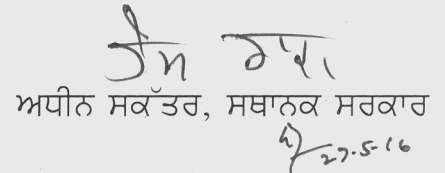 ਅਧੀਨ ਸਕੱਤਰ, ਸਥਾਨਕ ਸਰਕਾਰ
27-5-16